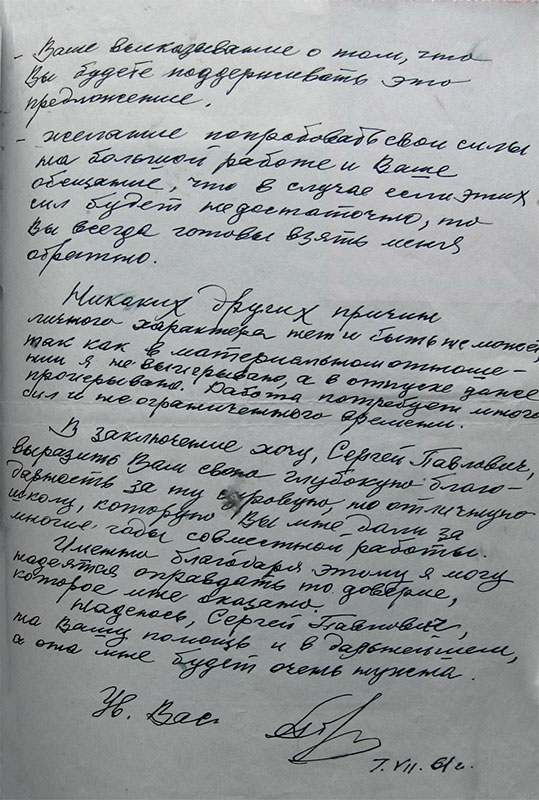 - Ваше высказывание о том, что
Вы будете поддерживать это
предложение.
- желание попробовать свои силы
на большой работе и Ваше
обещание, что в случае если этих
сил будет недостаточно, то
Вы всегда готовы взять меня
обратно.
Никаких других причин
личного характера нет и быть не может,
так как в материальном отноше-
нии я не выигрываю, а в отпуске даже
проигрываю. Работа потребует много
сил и не ограниченного времени.
В заключение хочу, Сергей Павлович,
выразить Вам свою глубокую благо-
дарность за ту суровую, но отличную
школу, которую Вы мне дали за
многие годы совместной работы.
Именно благодаря этому я могу
надеятся оправдать то доверие,
которое мне оказано.
Надеюсь, Сергей Павлович,
на Вашу помощь и в дальнейшем,
а она мне будет очень нужна.
Ув. Вас
7.VII.61г.